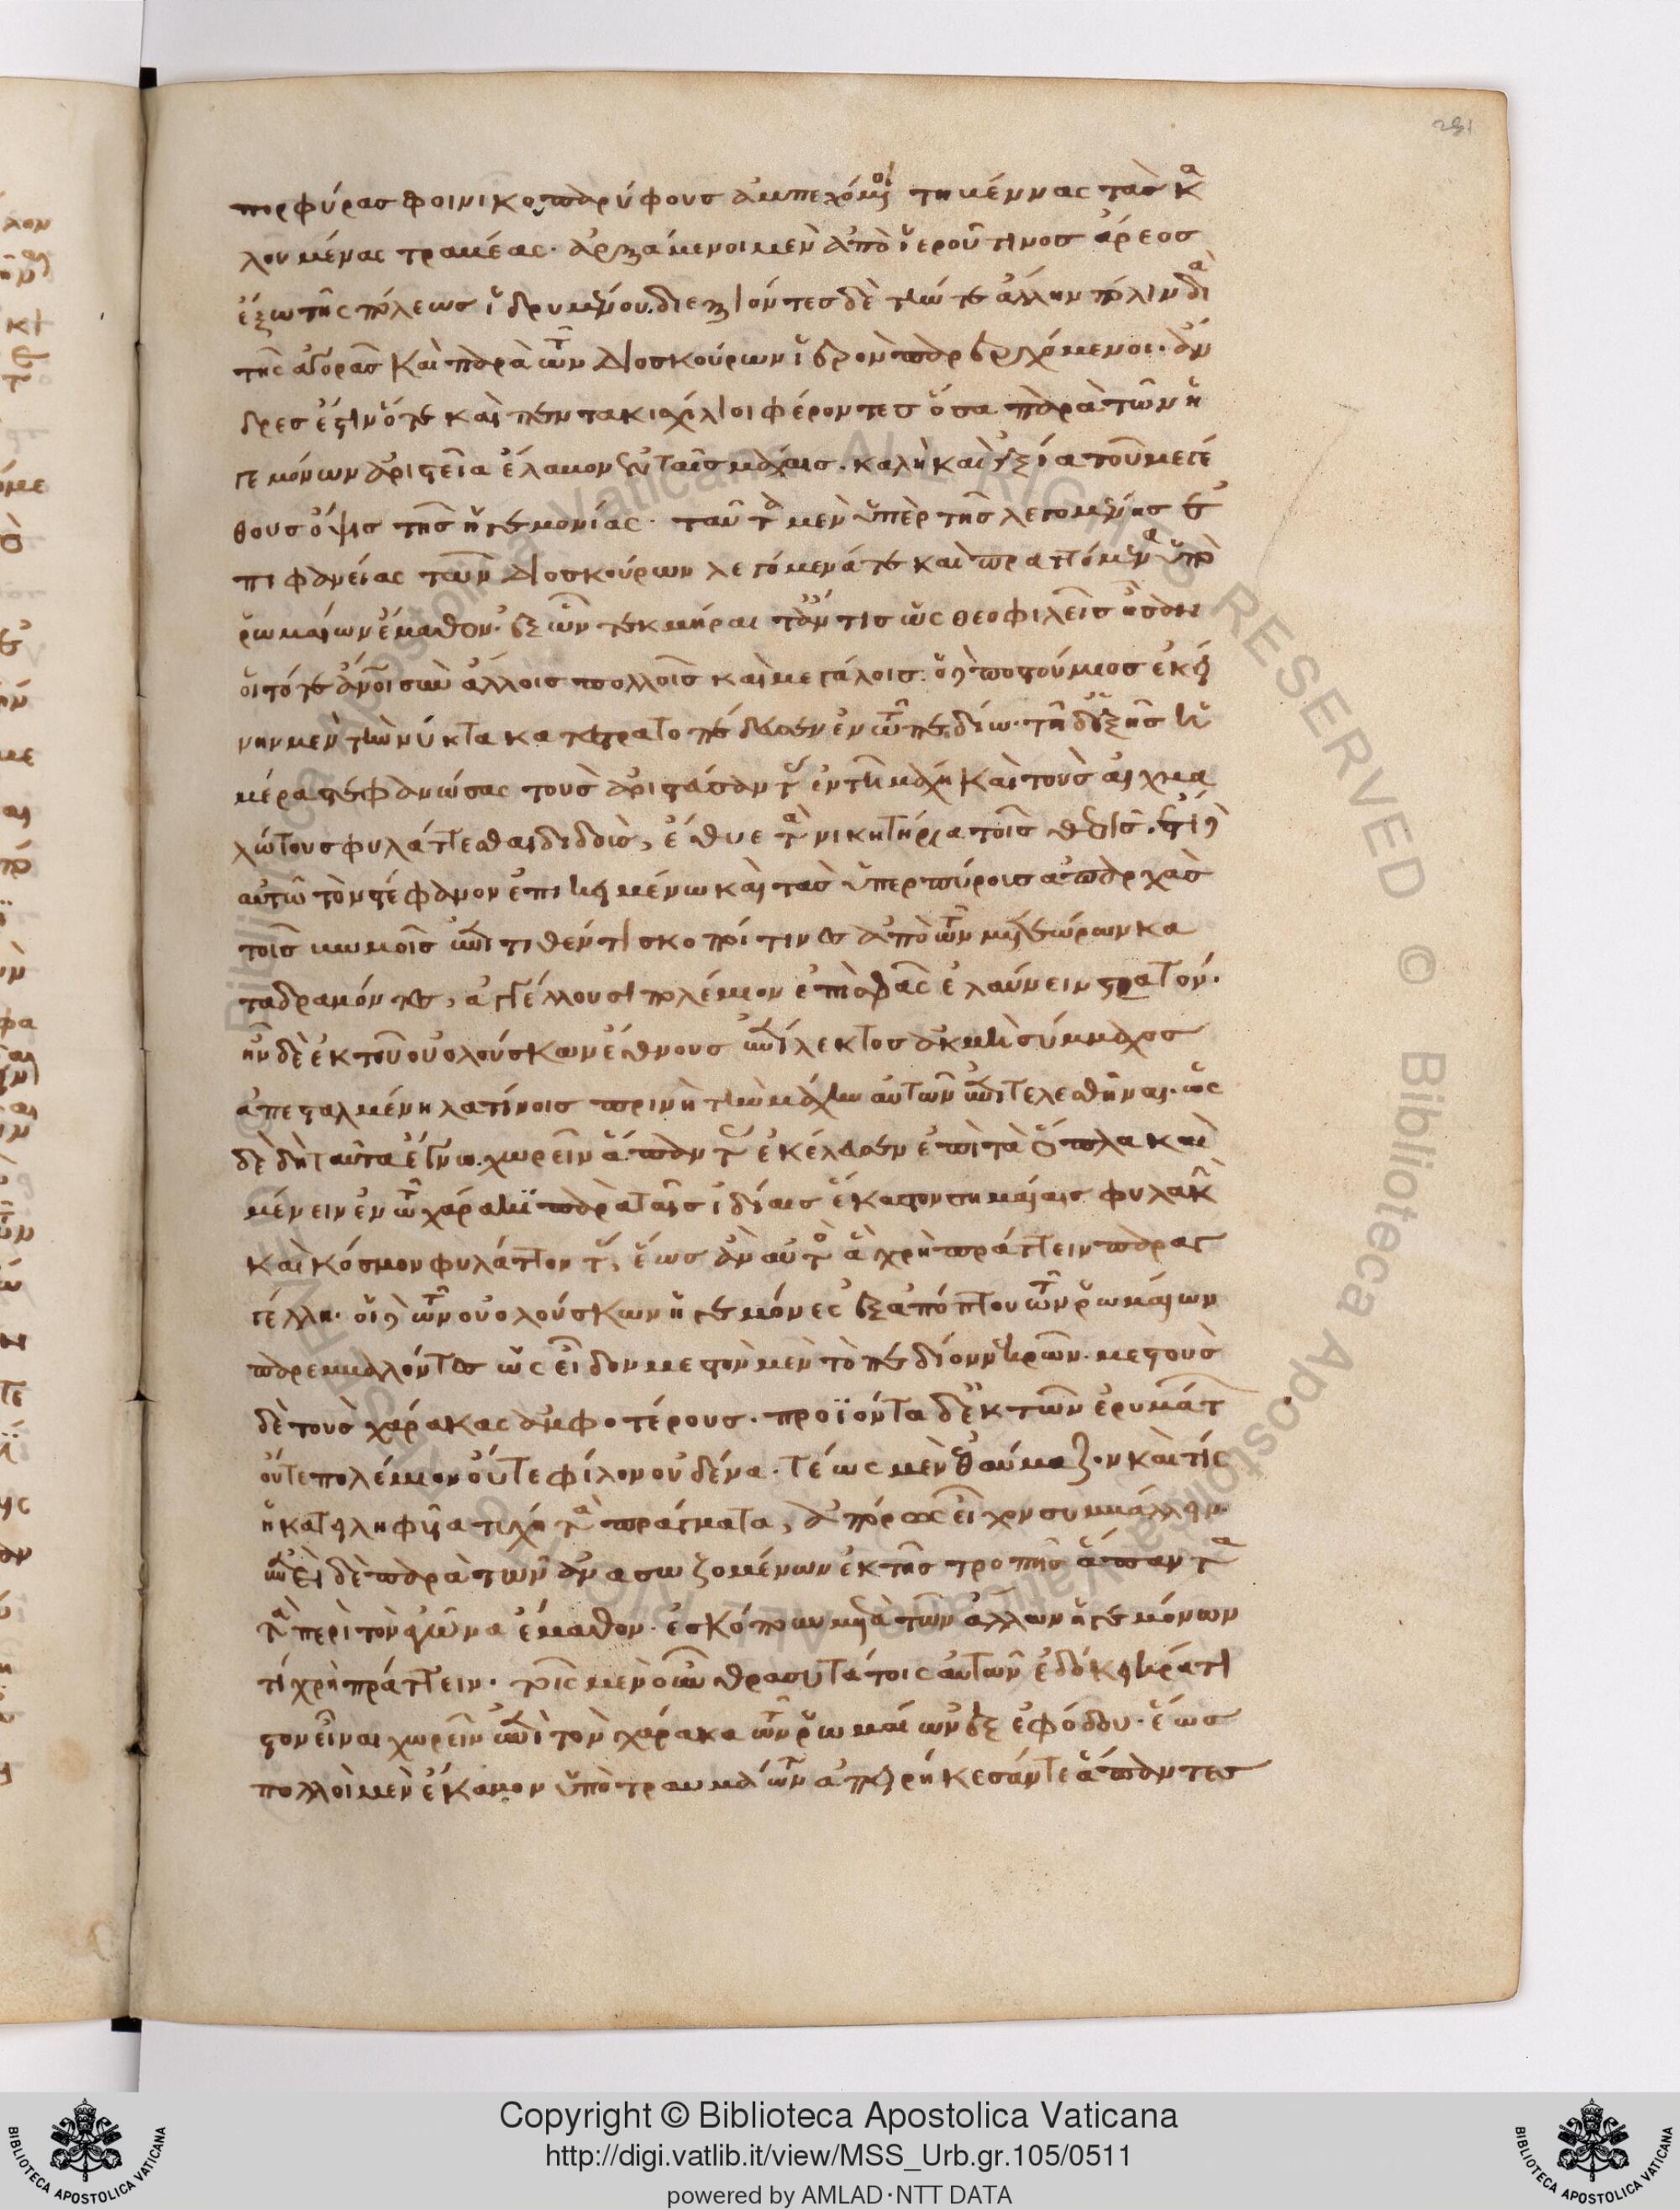 251
πορφύρας φοινικοπαρύφους ἀμπεχόμενοι τηβέννας τὰς κα
λουμένας τραβέας· ἀρξάμενοι μὲν ἀπὸ ἱεροῦ τινος ἄρεος
ἔξω τῆς πόλεως ἱδρυμένου. διεξιόντες δὲ τήν τε ἄλλην πόλιν διὰ
τῆς ἀγορᾶς καὶ παρὰ τῶν Διοσκούρων ἱερὸν παρερχόμενοι· ἄν
δρες ἔστιν ὅτε καὶ πεντακισχίλιοι φέροντες ὅσα παρὰ τῶν ἡ
γεμόνων ἀριστεῖα ἔλαβον ἐν ταῖς μάχαις. καλὴ καὶ ἀξία τοῦ μεγέ
θους ὄψις τῆς ἡγεμονίας. ταῦτα μὲν ὑπὲρ τῆς λεγομένης ἐ
πιφανείας τῶν Διοσκούρων λεγόμενά τε καὶ πραττόμενα ὑπὸ
ῥωμαίων ἔμαθον. ἐξ ὧν τεκμήραιτ' ἄν τις ὡς θεοφιλεῖς ἦσαν
οἱ τότε ἄνθρωποι σὺν ἄλλοις πολλοῖς καὶ μεγάλοις. ὁ δὲ ποστούμιος ἐκεί
νην μὲν τὴν νύκτα κατεστρατοπέδευσεν ἐν τῷ πεδίῳ. τῇ δ' ἑξῆς ἡ
μέρᾳ στεφανώσας τοὺς ἀριστεύσαντας ἐν τῇ μάχῃ καὶ τοὺς αἰχμα
λώτους φυλάττεσθαι διδοὺς, ἔθυε τὰ νικητήρια τοῖς θεοῖς. ἔτι δὲ
αὐτῷ τὸν στέφανον ἐπικειμένῳ καὶ τὰς ὑπερπύροις ἀπαρχὰς
τοῖς βωμοῖς ἐπιτιθέντι σκοποί τινες ἀπὸ τῶν μετεώρων κα
ταδραμόντες, ἀγγέλλουσι πολέμιον ἐπὶ σφᾶς ἐλαύνειν στρατόν.
ἦν δὲ ἐκ τοῦ οὐολούσκων ἔθνους ἐπίλεκτος ἀκμὴ σύμμαχος
ἀπεσταλμένη λατίνοις πρινὴ τὴν μάχην αὐτῶν ἐπιτελεσθῆναι. ὡς
δὲ δὴ ταῦτα ἔγνω. χωρεῖν ἅπαντας ἐκέλευσεν ἐπὶ τὰ ὅπλα καὶ
μένειν ἐν τῷ χάρακι παρὰ ταῖς ἰδίαις ἕκαστον σημαίαις φυλακὴν
καὶ κόσμον φυλάττοντας, ἕως ἂν αὐτὸς ἃ χρὴ πράττειν παραγ
γέλλῃ. οἱ δὲ τῶν οὐολούσκων ἡγεμόνες ἐξ ἀπόπτου τῶν ῥωμαίων
παρεμβαλόντες ὡς εἶδον μεστὸν μὲν τὸ πεδίον νεκρῶν. μεστοὺς
δὲ τοὺς χάρακας ἀμφοτέρους. προϊόντα δ' ἐκ τῶν ἐρυμάτων
οὔτε πολέμιον οὔτε φίλον οὐδένα. τέως μὲν ἐθαύμαζον καὶ τίς
ἡ κατειληφυῖα τύχη τὰ πράγματα, ἀπόρως εἶχον συμβάλλειν.
ἐπεὶ δὲ παρὰ τῶν ἀνασωζομένων ἐκ τῆς τροπῆς ἅπαντα
τὰ περὶ τὸν ἀγῶνα ἔμαθον. ἐσκόπουν μετὰ τῶν ἄλλων ἡγεμόνων
τί χρὴ πράττειν. τοῖς μὲν οὖν θρασυτάτοις αὐτῶν ἐδόκει κράτι
στον εἶναι χωρεῖν ἐπὶ τὸν χάρακα τῶν ῥωμαίων ἐξ ἐφόδου. ἕως
πολλοὶ μὲν ἔκαμον ὑπὸ τραυμάτων ἀπειρήκεσάν τε ἅπαντες
Copyright © Biblioteca Apostolica Vaticana
http://digi.vatlib.it/view/MSS_Urb.gr.105/0511
powered by AMLAD·NTT DATA